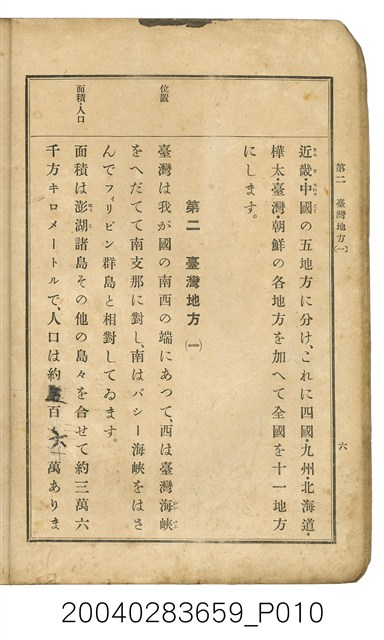 第二 臺灣地方(一)
六
近畿・中國の五地方に分け、これに四國・九州・北海道・
樺太・臺灣・朝鮮の各地方を加へて全國を十一地方
にします。
第二 臺灣地方(一)
位置
臺灣は我が國の南西の端にあつて、西は臺灣海峽
をへだてて南支那に對し、南はバシー海峽をはさ
んでフィリピン群島と相對してゐます。
面積・人口
面積は澎湖諸島その他の島々を合せて約三萬六
千方キロメートルで、人口は約五百六十萬ありま
20040283659_P010